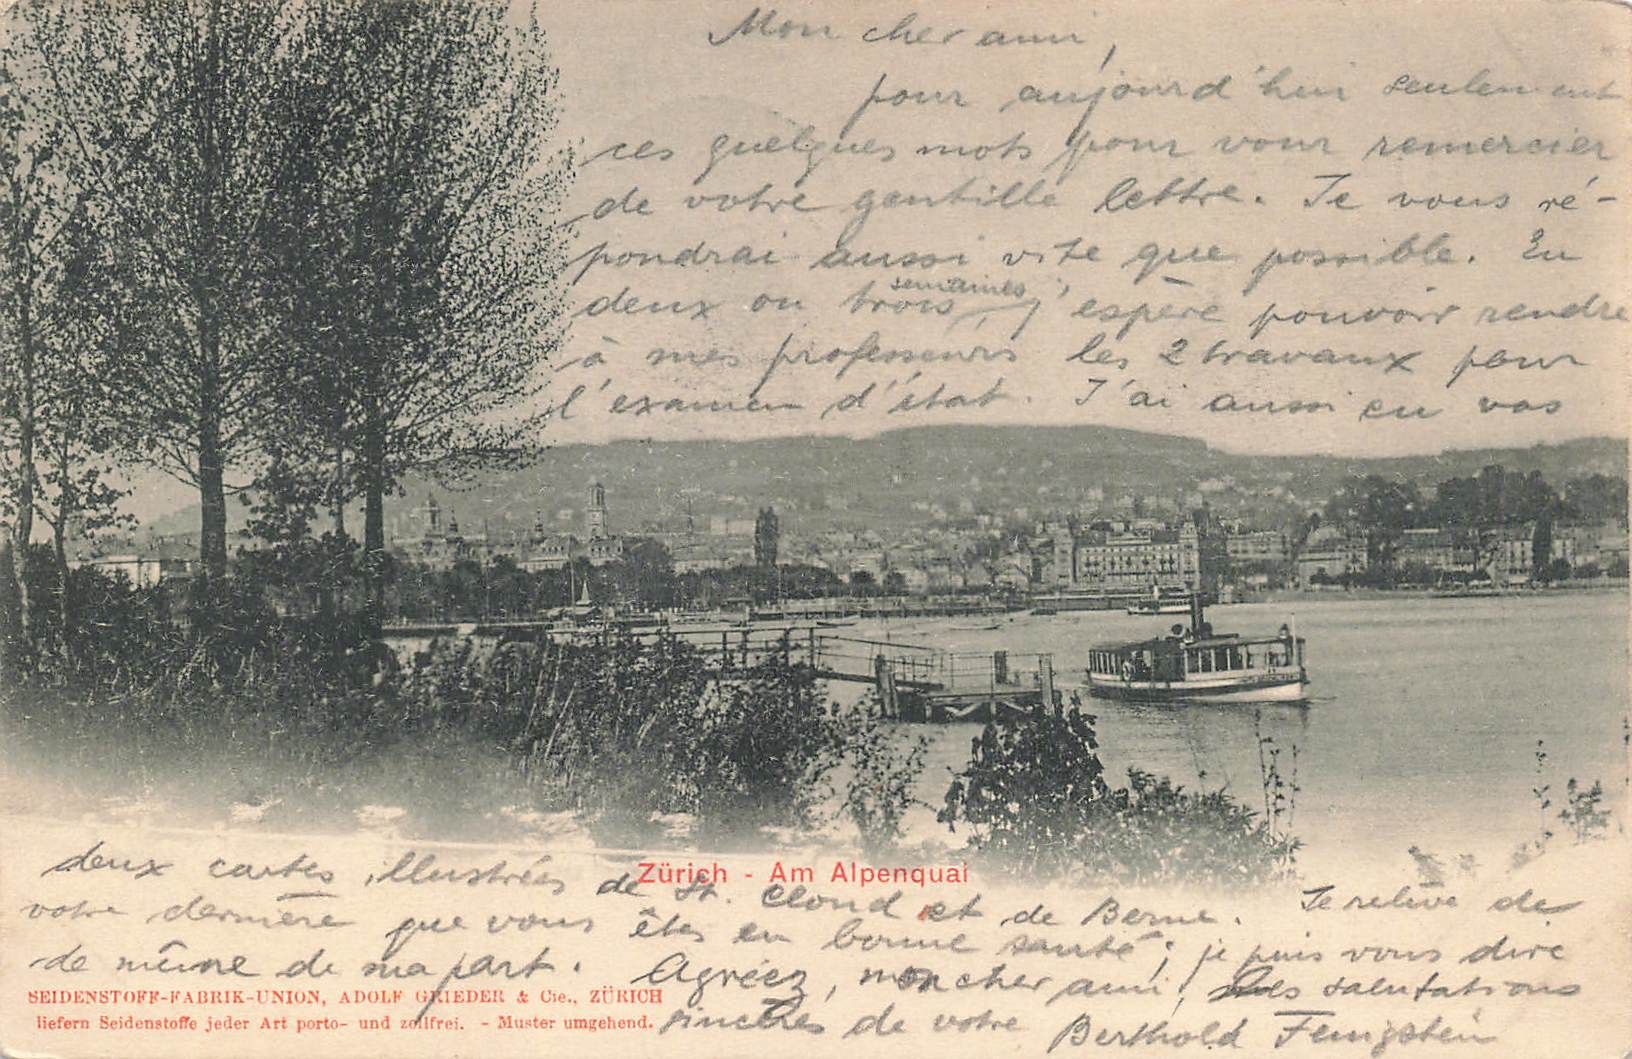 Mon cher ami,
pour aujourd'hui seulement
ces quelques mots pour vour remercier
de votre gentille lettre. Je vous ré-
pondrai aussi vite que possible. En
semaines
deux ou trois, j'espère pouvoir rendre
à mes professeurs les 2 travaux pour
l'examen d'état. J'ai aussi eu vos
deux cartes illustrées de St. Cloud et de Berne. Je relève de
votre dernière que vous êtes en bonne santé; je puis vous dire
de même de ma part. Agréez, mon cher ami, les salutations
sincères de votre Berthold
Zürich - Am Alpenquai
SEIDENSTOFF-FABRIK-UNION, ADOLF GRIEDER & Cie., ZÜRICH
liefern Seidenstoffe jeder Art porto- und zollfrei. - Muster umgehend.